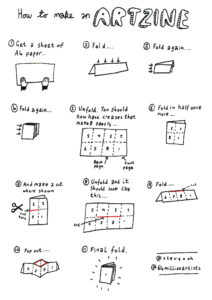 How to make an ARTZINE
① Get a sheet of
A4 paper...
② Fold...
③ Fold again...
④ Fold again...
⑤ Unfold. You should
now have creases that
make 8 panels...
Back
page
Front
page
⑥ Fold in half once
more...
⑦ And make a cut where
shown
cut
here
⑧ Unfold and it
should look like
this...
cut
⑨ Fold...
cut
⑩ Pop out...
⑪ Final fold.
@stevexoh
@64millionartists